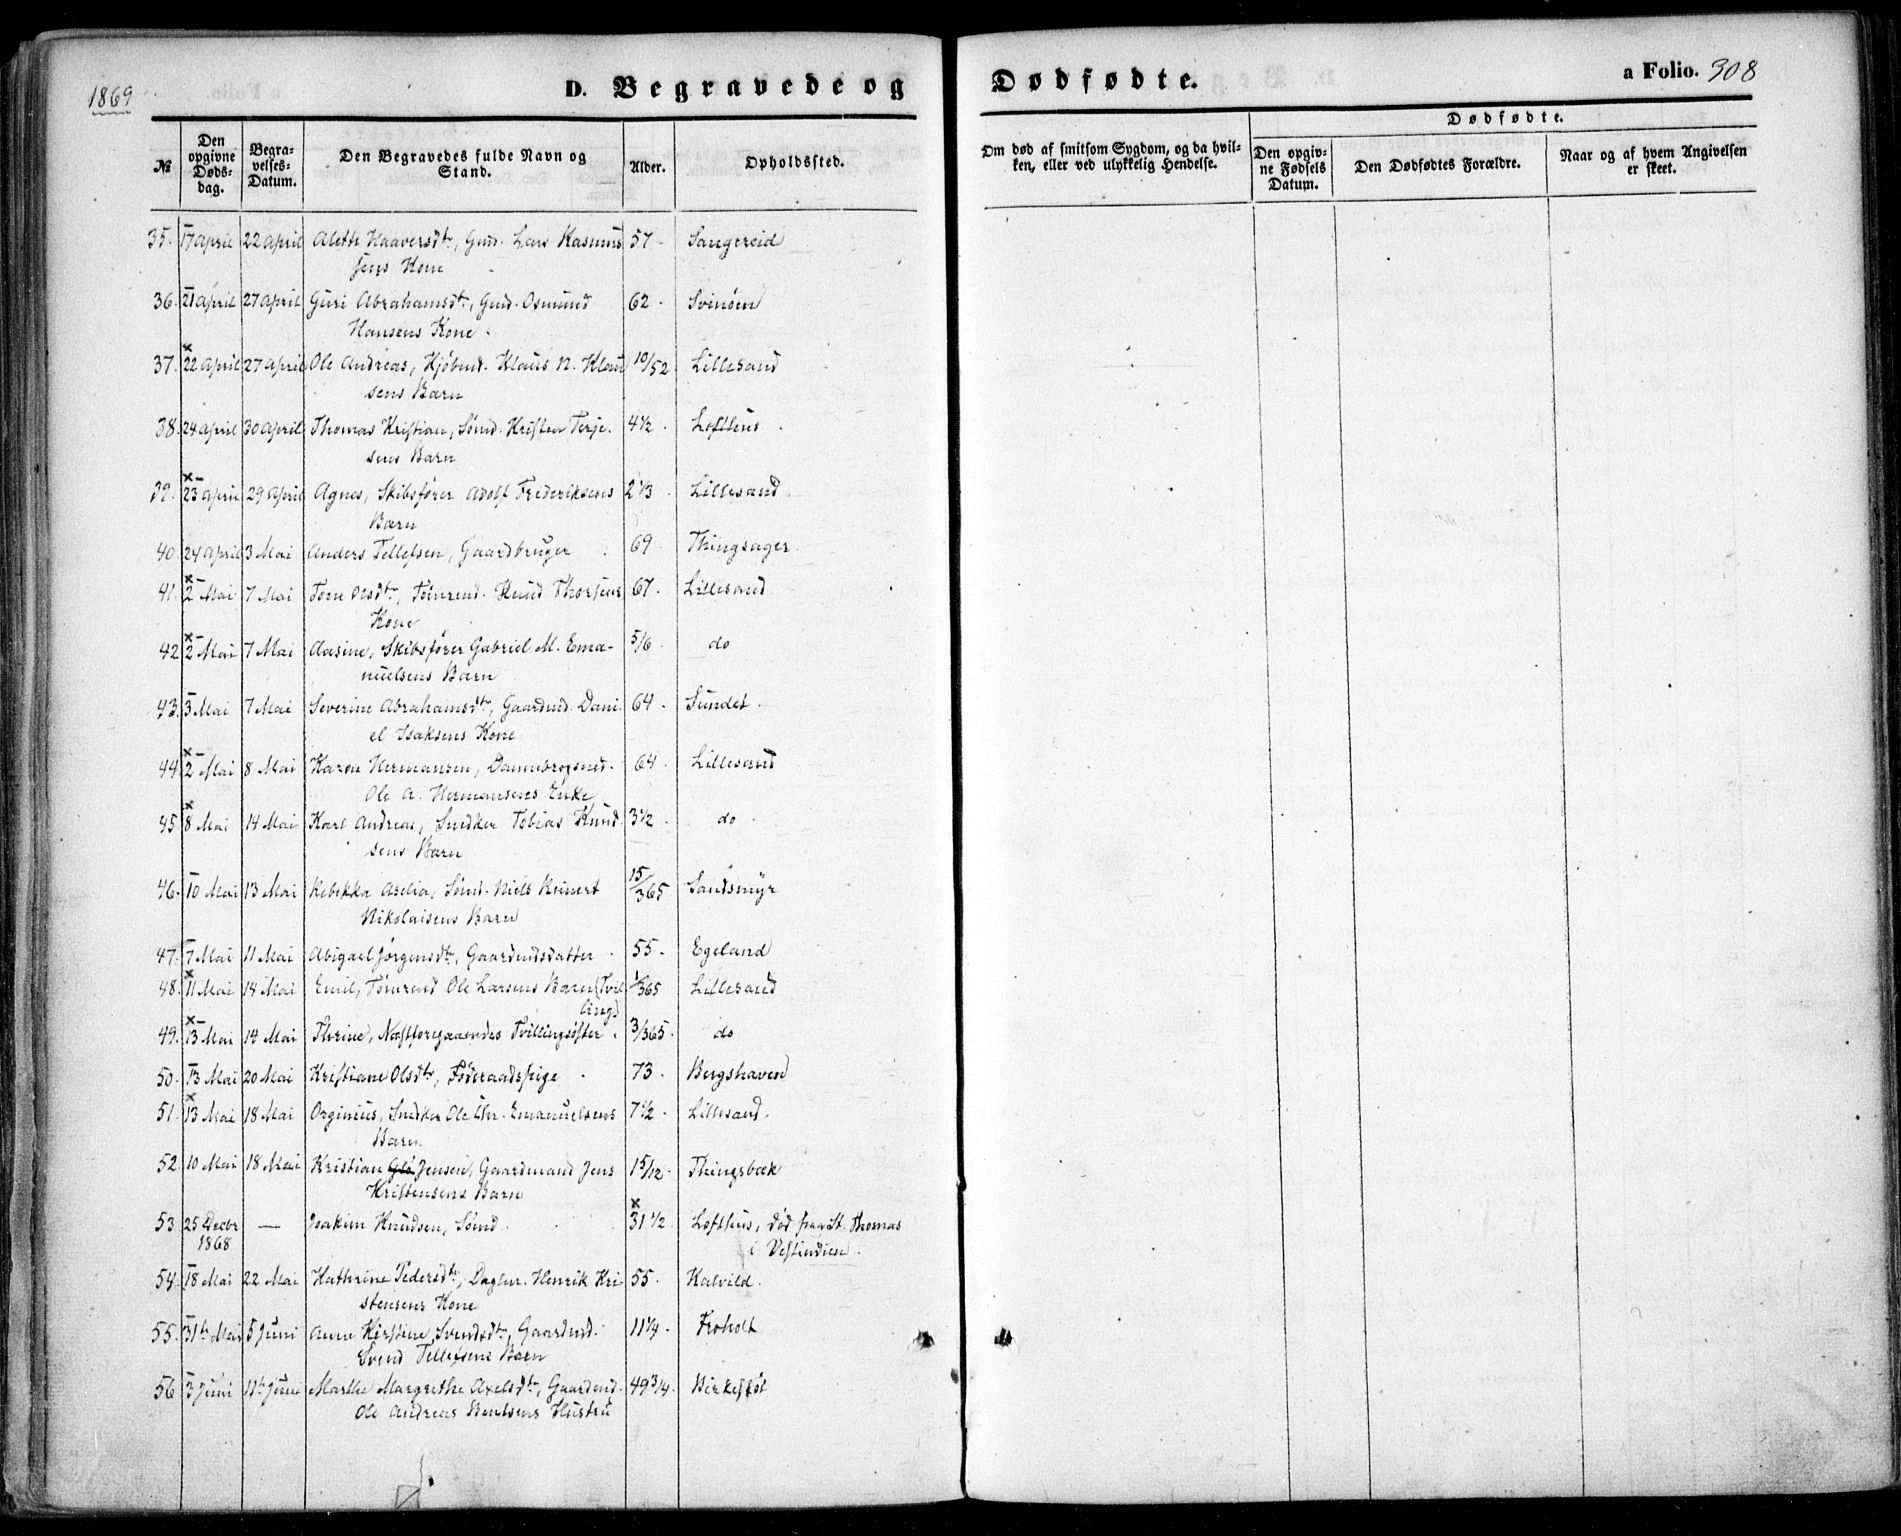 1869
D. Begravede og Dødfødte.
a Folio. 308
№
Den opgivne Dødsdag.
Begravelses-Datum.
Den Begravedes fulde Navn og Stand.
Alder.
Opholdssted.
Om død af smitsom Sygdom, og da hvilken, eller ved ulykkelig Hendelse.
Dødfødte.
Den opgivne Fødsels Datum.
Den Dødfødtes Forældre.
Naar og af hvem Angivelsen er skeet.
35. 17 April 22 April Alette Haaversdtr, Gmd. Lars Rasmus 57. Sangereid
sens Kone
36. 21 April 27 April Guri Abrahamsdtr, Gmd. Osmund 62. Svinøen
Hansens Kone.
37. x 22 April 27 April Ole Andreas, Kjøbmd. Klaus N. Klau 10/52 Lillesand
sens Barn
38. 24 April 30 April Thomas Kristian, Sømd. Kristen Terje- 4 1/2. Lofthus.
sens Barn
39. x 23 April 29 April Agnes, Skibsfører Adolf Frederiksens 2 1/3. Lillesand.
Barn
40. 24 April 3 Mai Anders Tellefsen, Gaardbruger 69. Thingsager.
41. x 2 Mai 7 Mai Tone Olsdtr, Tømrmd. Knud Thorsens 67. Lillesand
Kone
42 x 2 Mai 7 Mai Aasine, Skibsfører Gabriel M. Ema- 5/6. do
nuelsens Barn
43. 3 Mai 7 Mai Severine Abrahamsdtr, Gaardmd. Dani- 64. Sundet.
el Isaksens Kone
44. x 2 Mai 8 Mai Karen Hermansen, Dannebrogsmd. 64. Lillesand
Ole A. Hermansens Enke
45. x 8 Mai 14 Mai Karl Andreas, Snedker Tobias Knud- 3 1/2. do.
sens Barn
46. 10 Mai 13 Mai Rebekka Aselia, Sømd. Niels Reinert 15/365 Sandsmyr
Nikolaisens Barn
47. 7 Mai 11 Mai Abigael Jørgensdtr, Gaardmdsdatter. 55. Egeland
48. x 11 Mai 14 Mai Emil, Tømrmd Ole Larsens Barn (Tvil 1/365 Lillesand
ling)
49. x 13 Mai 14 Mai Thrine, Næstforegaaendes Tvillingsøster. 3/365. do
50. 13 Mai 20 Mai Kristiane Olsdtr, Føderaadspige. 73. Bergshaven
51. x 13 Mai 18 Mai Orginius, Snedker Ole Chr. Emanuelsens 7 1/2. Lillesand.
Barn
52. 10 Mai 18 Mai Kristian Jensen, Gaardmand Jens 15/12. Thingsbæk
Kristensens Barn
53. 25 Decbr — Joakim Knudsen, Sømd. x 31 1/2. Lofthus, død paa St. Thomas
1868 i Vestindien.
54. 18 Mai 22 Mai Kathrine Pedersdtr, Dagler. Henrik Kri- 55. Kalvild.
stensens Kone
55. 31te Mai 5 Juni Anne Kirstine Svendsdtr, Gaardmd. 11 1/4. Froholt
Svend Tellefsens Barn
56 3 Juni 11te June Marthe Margrethe Axelsdtr, Gaardmd. 49 3/4. Birkefløt
Ole Andreas Bentsens Hustru